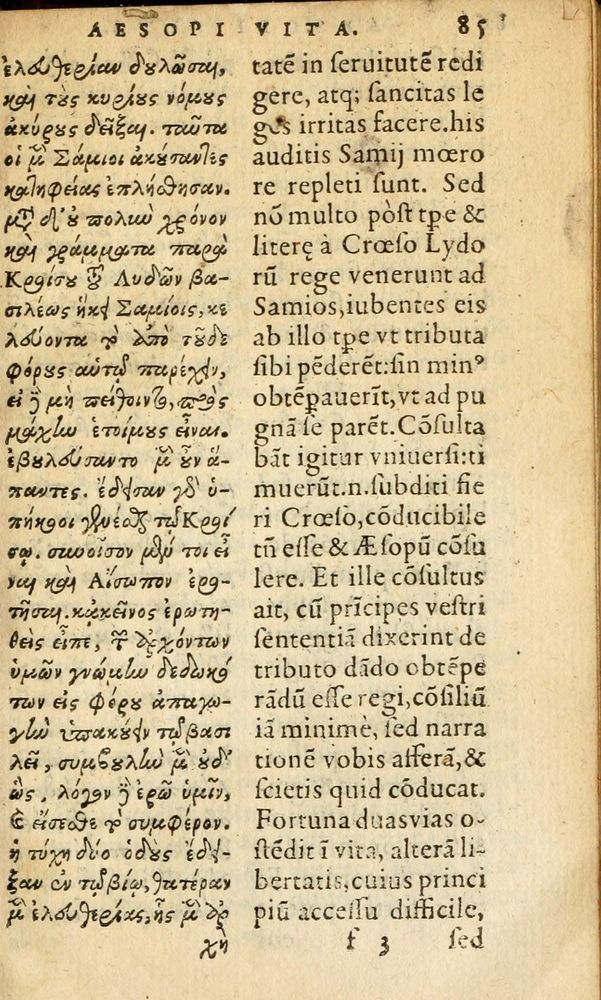 AESOPI VITA. 85
ἐλευθερίαν δουλῶσαι,
καὶ τοὺς κυρίους νόμους
ἀκύρους δεῖξαι. ταῦτα
οἱ μὲν Σάμιοι ἀκούσαντες
κατηφείας ἐπλήσθησαν.
μετ' δ' οὐ πολὺν χρόνον
καὶ γράμματα παρὰ
Κροίσου τοῦ Λυδῶν βα-
σιλέως ἧκε Σαμίοις, κε
λεύοντα τὸ ἀπὸ τοῦδε
φόρους αὐτῷ παρέχειν,
εἰ δὲ μὴ πείθοιντο, πρὸς
μάχην ἑτοίμους εἶναι.
ἐβουλεύσαντο μὲν οὖν ἅ-
παντες. ἔδεισαν γὰρ ὑ-
πήκοοι γενέσθαι τῷ Κροί
σῳ. συνοῖσον μέν τοι εἶ
ναι καὶ Αἴσωπον ἐρω-
τῆσαι. κἀκεῖνος ἐρωτη-
θεὶς εἶπε, τῶν ἀρχόντων
ὑμῶν γνώμην δεδωκό
των εἰς φόρου ἀπαγω-
γὴν ὑπακούειν τῷ βασι
λεῖ, συμβουλὴν μὲν οὐδ'
ὣς, λόγον δὲ ἐρῶ ὑμῖν,
καὶ εἴσεσθε τὸ συμφέρον.
ἡ τύχη δύο ὁδοὺς ἔδει-
ξεν ἐν τῷ βίῳ, θατέραν
μὲν ἐλευθερίας, ἧς μὲν ἀρ
χὴ
tatē in ſeruitutē redi
gere, atq; ſancitas le
ges irritas facere.his
auditis Samij mœro
re repleti ſunt. Sed
nō multo pòſt tꝑe &
literę à Crœſo Lydo
rū rege venerunt ad
Samios,iubentes eis
ab illo tꝑe vt tributa
ſibi pēderēt:ſin minꝰ
obtēꝑauerīt,vt ad pu
gnā ſe parēt.Cōſulta
bāt igitur vniuerſi:ti
muerūt.n.ſubditi fie
ri Crœſo,cōducibile
tn̄ eſſe & Æſopū cōſu
lere. Et ille cōſultus
ait, cū prīcipes veſtri
ſententiā dixerint de
tributo dādo obtēpe
rādū eſſe regi,cōſiliū
iā minimè, ſed narra
tionē vobis afferā,&
ſcietis quid cōducat.
Fortuna duas vias o-
ſtēdit ī vita, alterā li-
bertatis,cuius princi
piū acceſſu difficile,
f 3 ſed